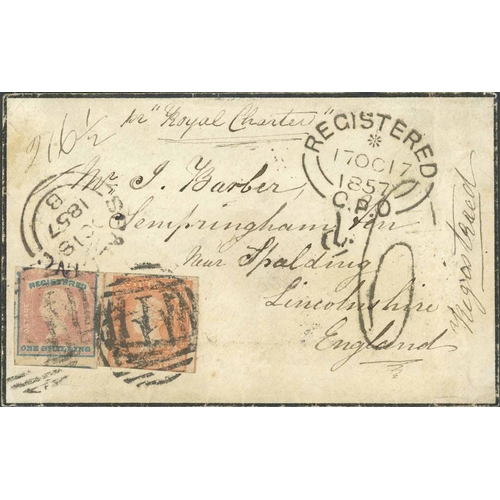 216½
pr "Royal Charter"
REGISTERED
17 OC 17
1857
G.P.O
Mr. J. Barber,
Sempringham Fen
Near Spalding
Lincolnshire
England
REGISTERED
ONE SHILLING
1857